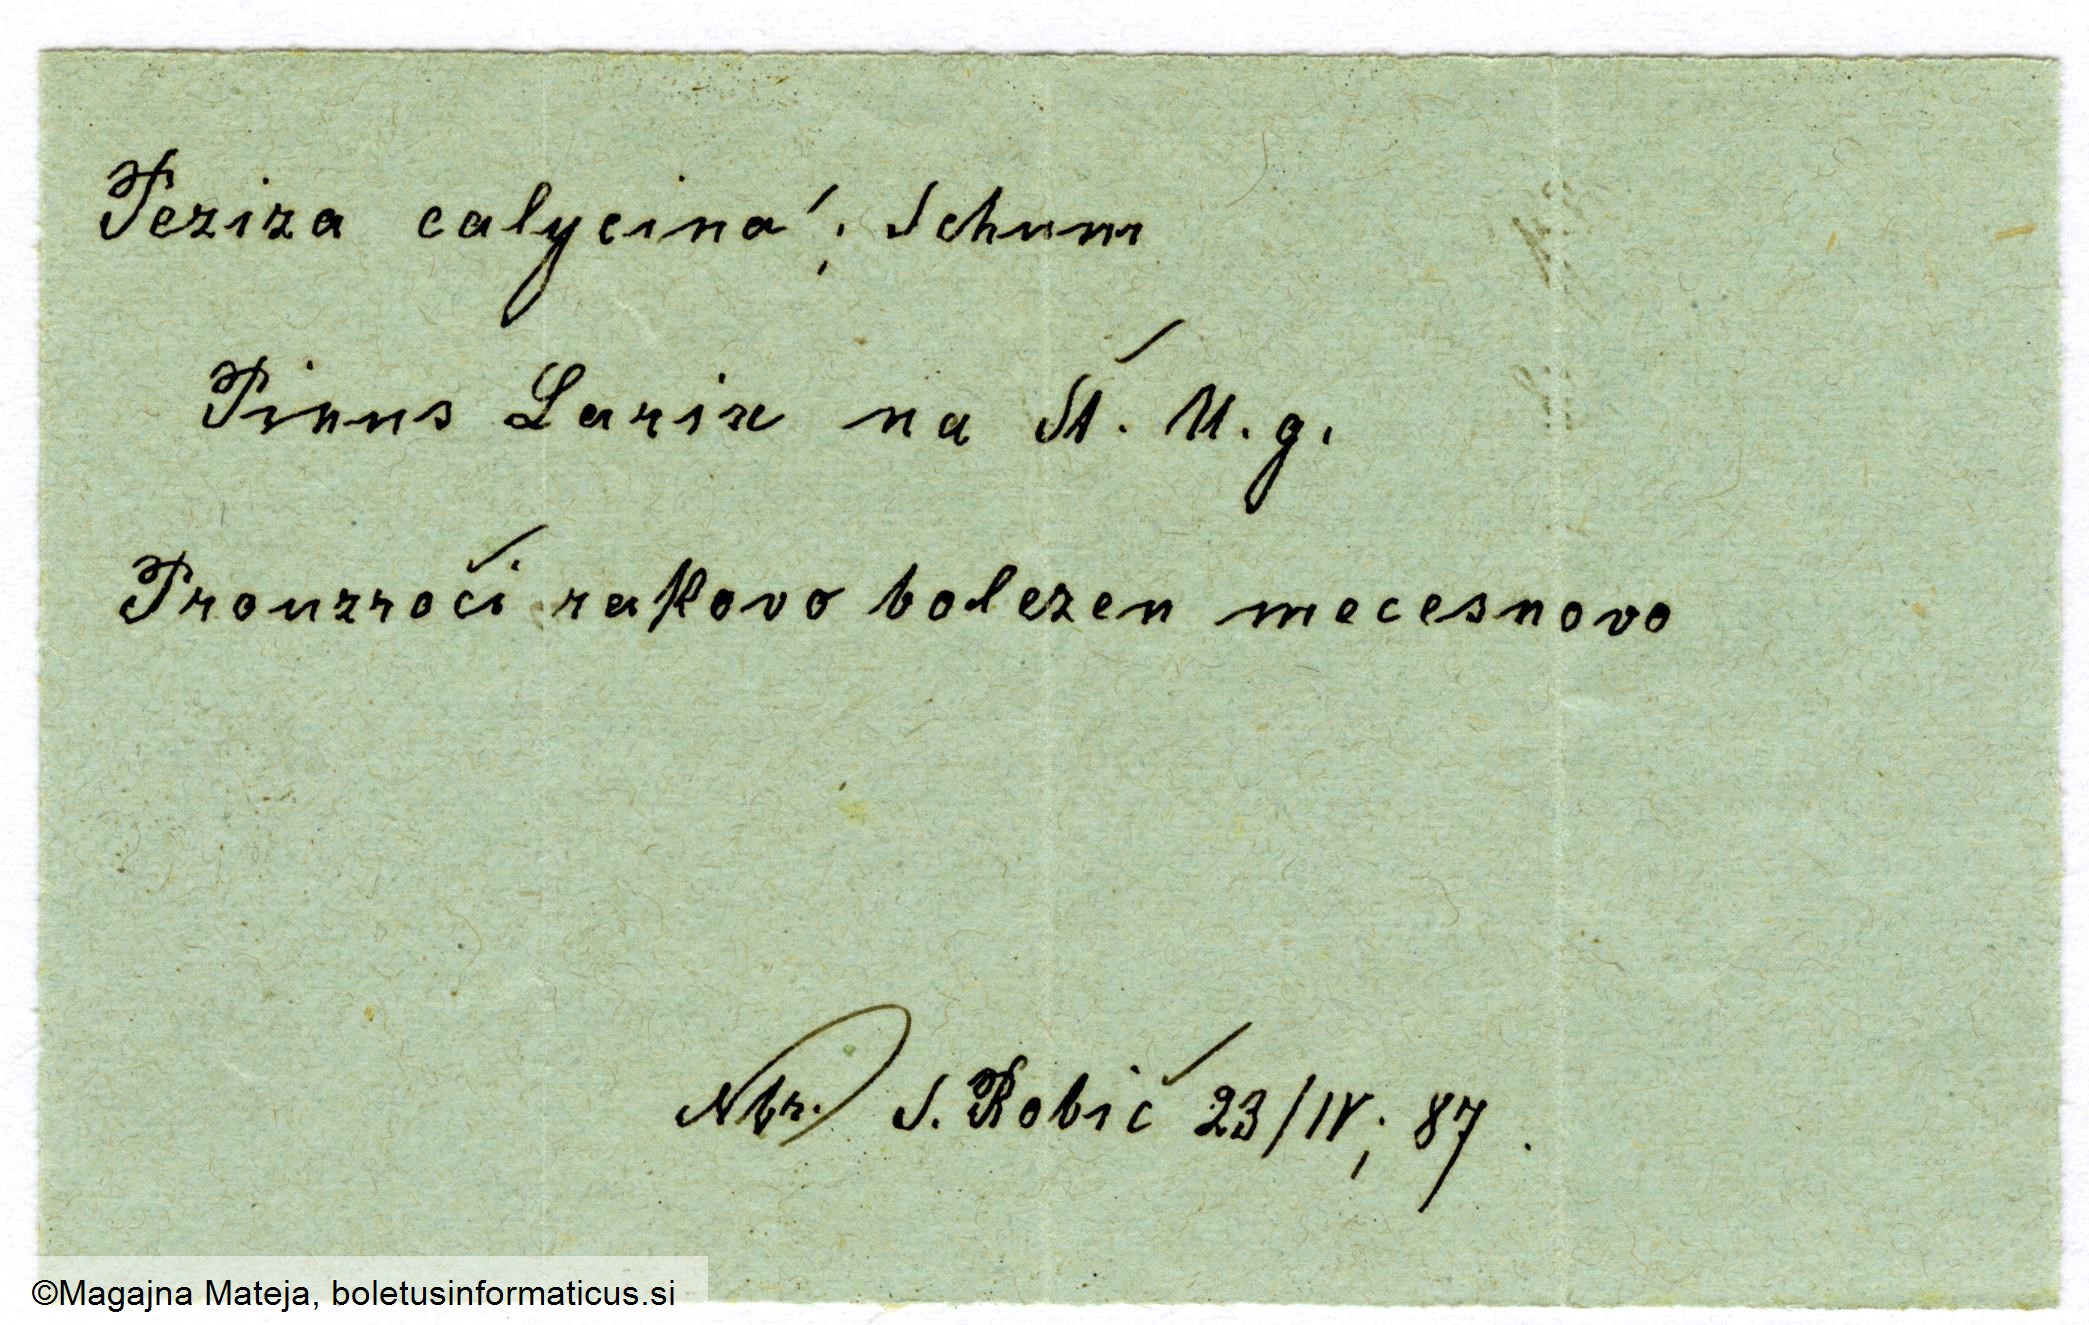 Peziza calycina; Schum
Pinus Larix na Št. M. g.
Prouzroči rakovo bolezen mecesnovo
Nbr. S. Robič 23/IV; 87.
©Magajna Mateja, boletusinformaticus.si